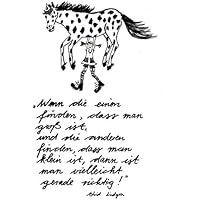 „Wenn die einen
finden, dass man
groß ist,
und die anderen
finden, dass man
klein ist, dann ist
man vielleicht
gerade richtig!"
Astrid Lindgren